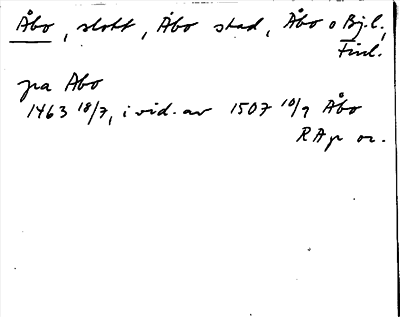 Åbo, slott, Åbo stad, Åbo o Bj. l.,
Finl.
pa Åbo
1463 18/7, i vid. av 1507 10/9 Åbo
RAp or.